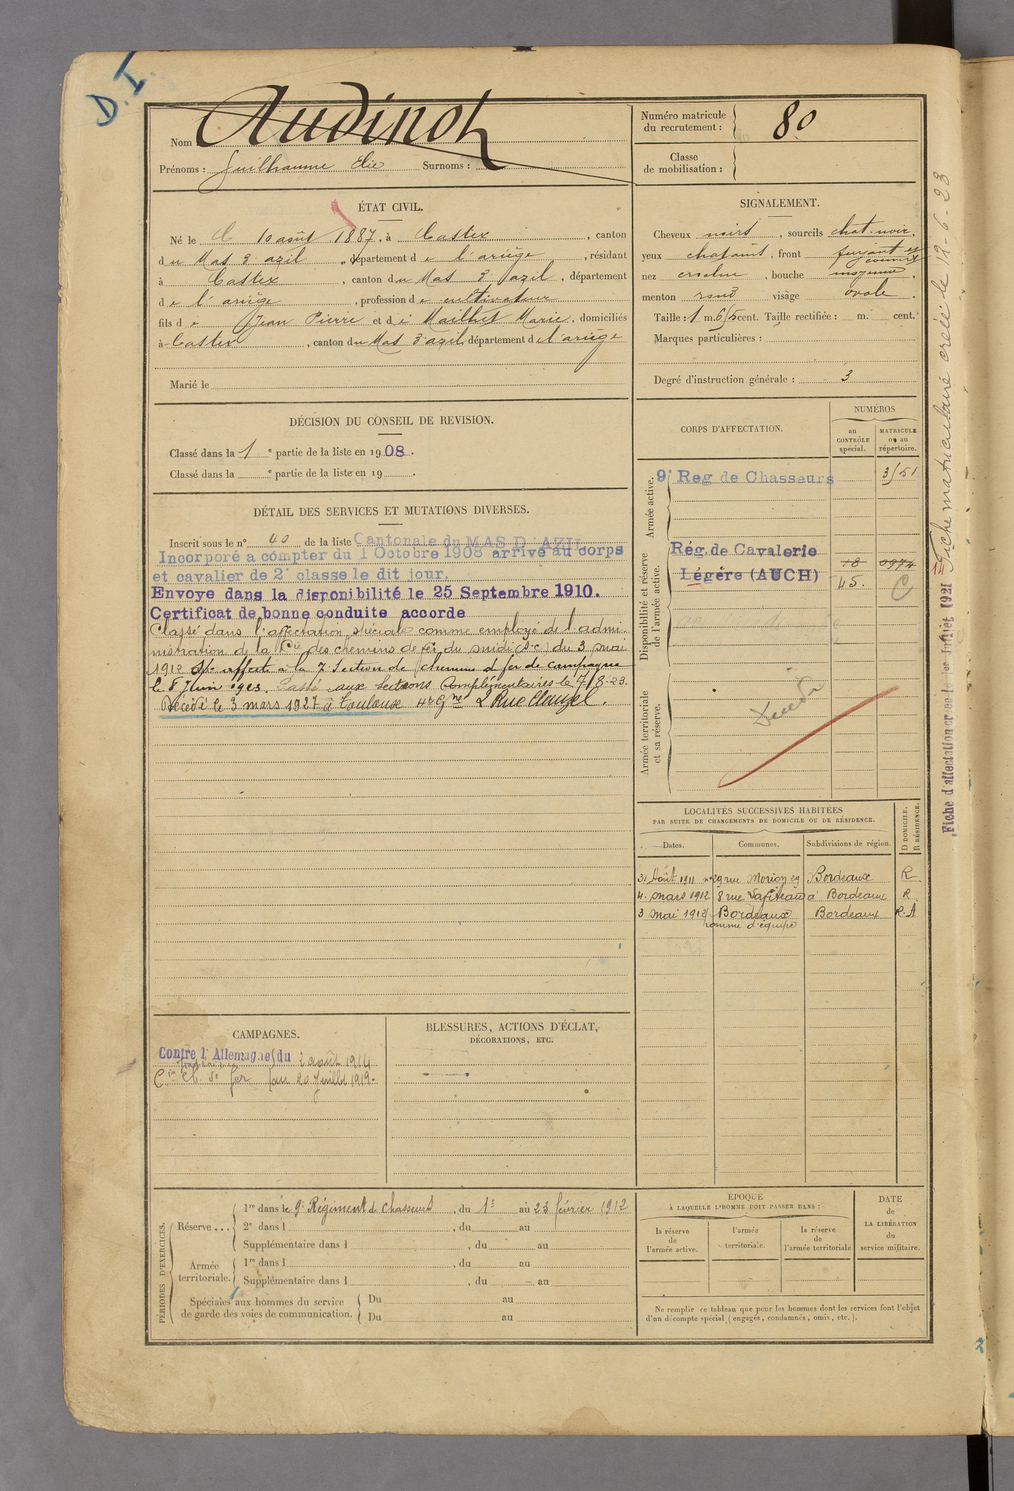 D.I
Nom Audinot
Prénoms : Guilhaume Elie Surnoms :
Numéro matricule du recrutement : 80
Classe de mobilisation :
ÉTAT CIVIL.
Né le 10 août 1887, à Castex, canton
du Mas d'azil, département de l'ariège, résidant
à Castex, canton du Mas d'azil, département
de l'ariège, profession de cultivateur
fils de Jean Pierre et de Mailhet Marie, domiciliés
à Castex, canton du Mas d'azil, département de l'ariège
Marié le
SIGNALEMENT.
Cheveux noirs, sourcils chat. noir,
yeux chatains, front fuyant et
nez, bouche moyenne,
menton rond visage ovale.
Taille : 1 m. 65 cent. Taille rectifiée : m. cent.
Marques particulières :
Degré d'instruction générale : 3
DÉCISION DU CONSEIL DE REVISION.
Classé dans la 1e partie de la liste en 1908.
Classé dans la e partie de la liste en 19 .
DÉTAIL DES SERVICES ET MUTATIONS DIVERSES.
Inscrit sous le n° 40 de la liste Cantonale du MAS D'AZIL
Incorporé a compter du 1 Octobre 1908 arrivé au corps
et cavalier de 2e classe le dit jour.
Envoye dans la disponibilité le 25 Septembre 1910.
Certificat de bonne conduite accorde
Classé dans l'affectation spéciale comme employé de l'admi-
nistration de la Cie des chemins de fer du midi (s.c) du 3 mai
1912 affecté à la 7e Section de chemins de fer de campagne
le 8 Juin 1923. Passé aux Sections Complémentaires le 7/8-23.
Décédé le 3 mars 1927 à Toulouse 2 Rue Clauzel.
CORPS D'AFFECTATION.
NUMÉROS
au CONTRÔLE spécial.
MATRICULE ou au répertoire.
Armée active.
9e Reg de Chasseurs 3151
Disponibilité et réserve de l'armée active.
Rég. de Cavalerie 18 0974
Légère (AUCH) 45. C
Armée territoriale et sa réserve.
Décédé
LOCALITÉS SUCCESSIVES HABITÉES
PAR SUITE DE CHANGEMENTS DE DOMICILE OU DE RÉSIDENCE.
Dates. Communes. Subdivisions de région. D DOMICILE. R RÉSIDENCE.
31 Août 1911 29 rue Bordeaux R
4 mars 1912 8 rue Lafiteau à Bordeaux R
3 mai 1912 Bordeaux Bordeaux R.A
homme d'équipe
CAMPAGNES.
Contre l'Allemagne du 2 août 1914
Cie Ch. de fer au 20 Juillet 1919.
BLESSURES, ACTIONS D'ÉCLAT,
DÉCORATIONS, ETC.
PÉRIODES D'EXERCICES.
Réserve... 1re dans le 9e Régiment de chasseurs, du 1er au 23 février 1912
2e dans l , du au
Supplémentaire dans l , du au
Armée territoriale. 1re dans l , du au
Supplémentaire dans l , du au
Spéciales aux hommes du service de garde des voies de communication. Du au
Du au
ÉPOQUE
À LAQUELLE L'HOMME DOIT PASSER DANS :
la réserve de l'armée active.
l'armée territoriale.
la réserve de l'armée territoriale
DATE DE LA LIBÉRATION du service militaire.
Ne remplir ce tableau que pour les hommes dont les services font l'objet
d'un décompte spécial (engagés, condamnés, omis, etc.).
Fiche matriculaire créée le 12-6-23
Fiche d'affectation créée le 1er Juillet 1921